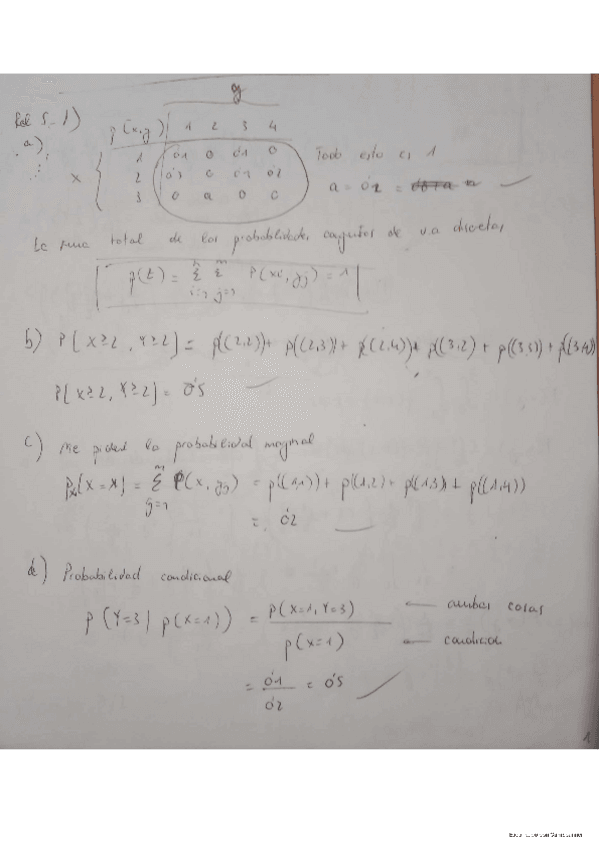 y
Rel 5_ 1)
a)
p(x,y) 1 2 3 4
1 0'1 0 0'1 0
x 2 0'3 0 0'1 0'2
3 0 a 0 0
Todo esto es 1
a = 0'2 =
La suma total de las probabilidades conjuntas de v.a discretas
p(t) = Σ i=1 n Σ j=1 m P(xi, yj) = 1
b) P[X≥2, Y≥2] = p((2,2)) + p((2,3)) + p((2,4)) + p((3,2) + p((3,3)) + p((3,4))
P[X≥2, Y≥2] = 0'5
c) Me piden la probabilidad marginal
[X=x] = Σ j=1 m P(x, yj) = p((1,1)) + p((1,2) + p((1,3)) + p((1,4))
= 0'2
d) Probabilidad condicional
P(Y=3 | p(X=1)) = P(X=1, Y=3) ← ambas cosas
p(X=1) ← condición
= 0'1 / 0'2 = 0'5
1